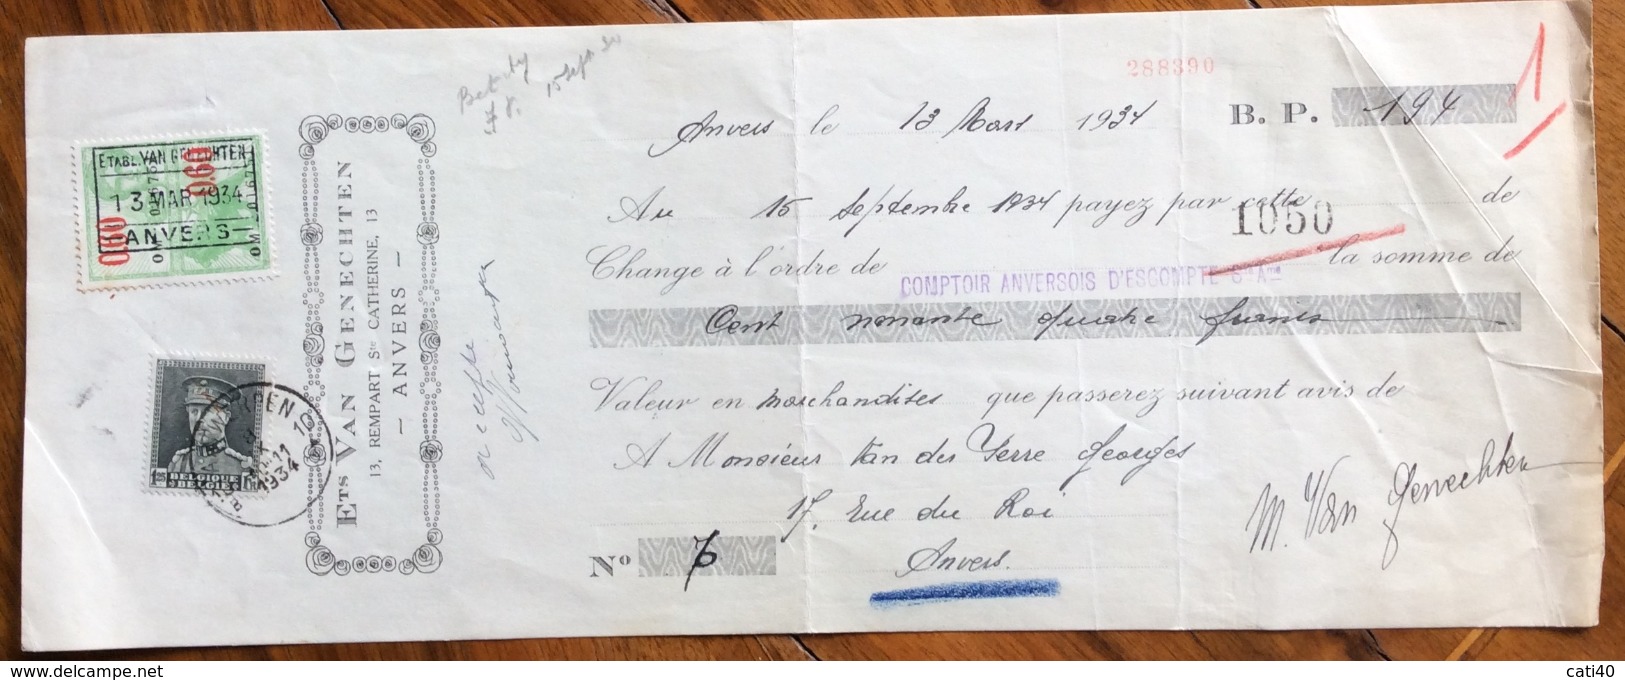 288390
Anvers le 13 Mars 1934 B. P. 194
1
Au 15 Septembre 1934 payez par cette de
1050
Change à l'ordre de COMPTOIR ANVERSOIS D'ESCOMPTE Sté Ame la somme de
Cent nonante quatre francs
Valeur en marchandises que passerez suivant avis de
A Monsieur Van der Perre Georges
17, Rue du Roi
Anvers.
No 76
M. Van Genechten
ETS VAN GENECHTEN
13, REMPART Ste CATHERINE, 13
— ANVERS —
accepté
15 Sept
ETABL. VAN GENECHTEN
13 MAR 1934
ANVERS
0.60
0.60
BELGIQUE
BELGIË
1934
cati40